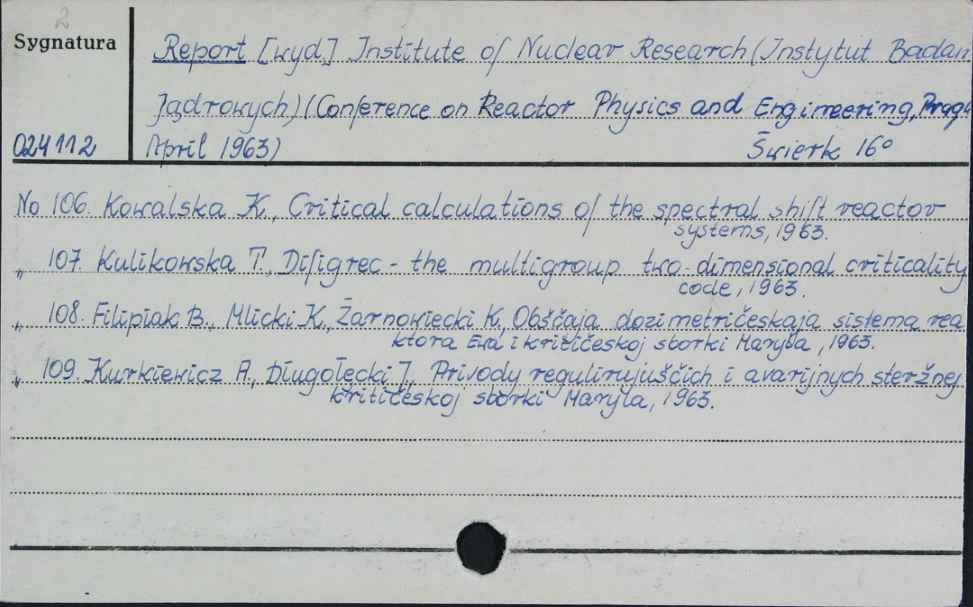 2
Sygnatura
Report [wyd.] Institute of Nuclear Research (Instytut Badań
Jądrowych) (Conference on Reactor Physics and Engineering, Prague
024112
April 1963)
Świerk 16°
No 106. Kowalska K., Critical calculations of the spectral shift reactor
systems, 1963.
„ 107. Kulikowska T., Difigrec - the multigroup two-dimensional criticality
code, 1963.
„ 108. Filipiak B., Mlicki K., Żarnowiecki K., Obščaja dozimetričeskaja sistema rea
ktora Ewa i kritičeskoj sborki Maryla, 1963.
„ 109. Kurkiewicz A., Długołęcki J., Privody regulirujuščich i avarijnych steržnej
kritičeskoj sborki Maryla, 1963.